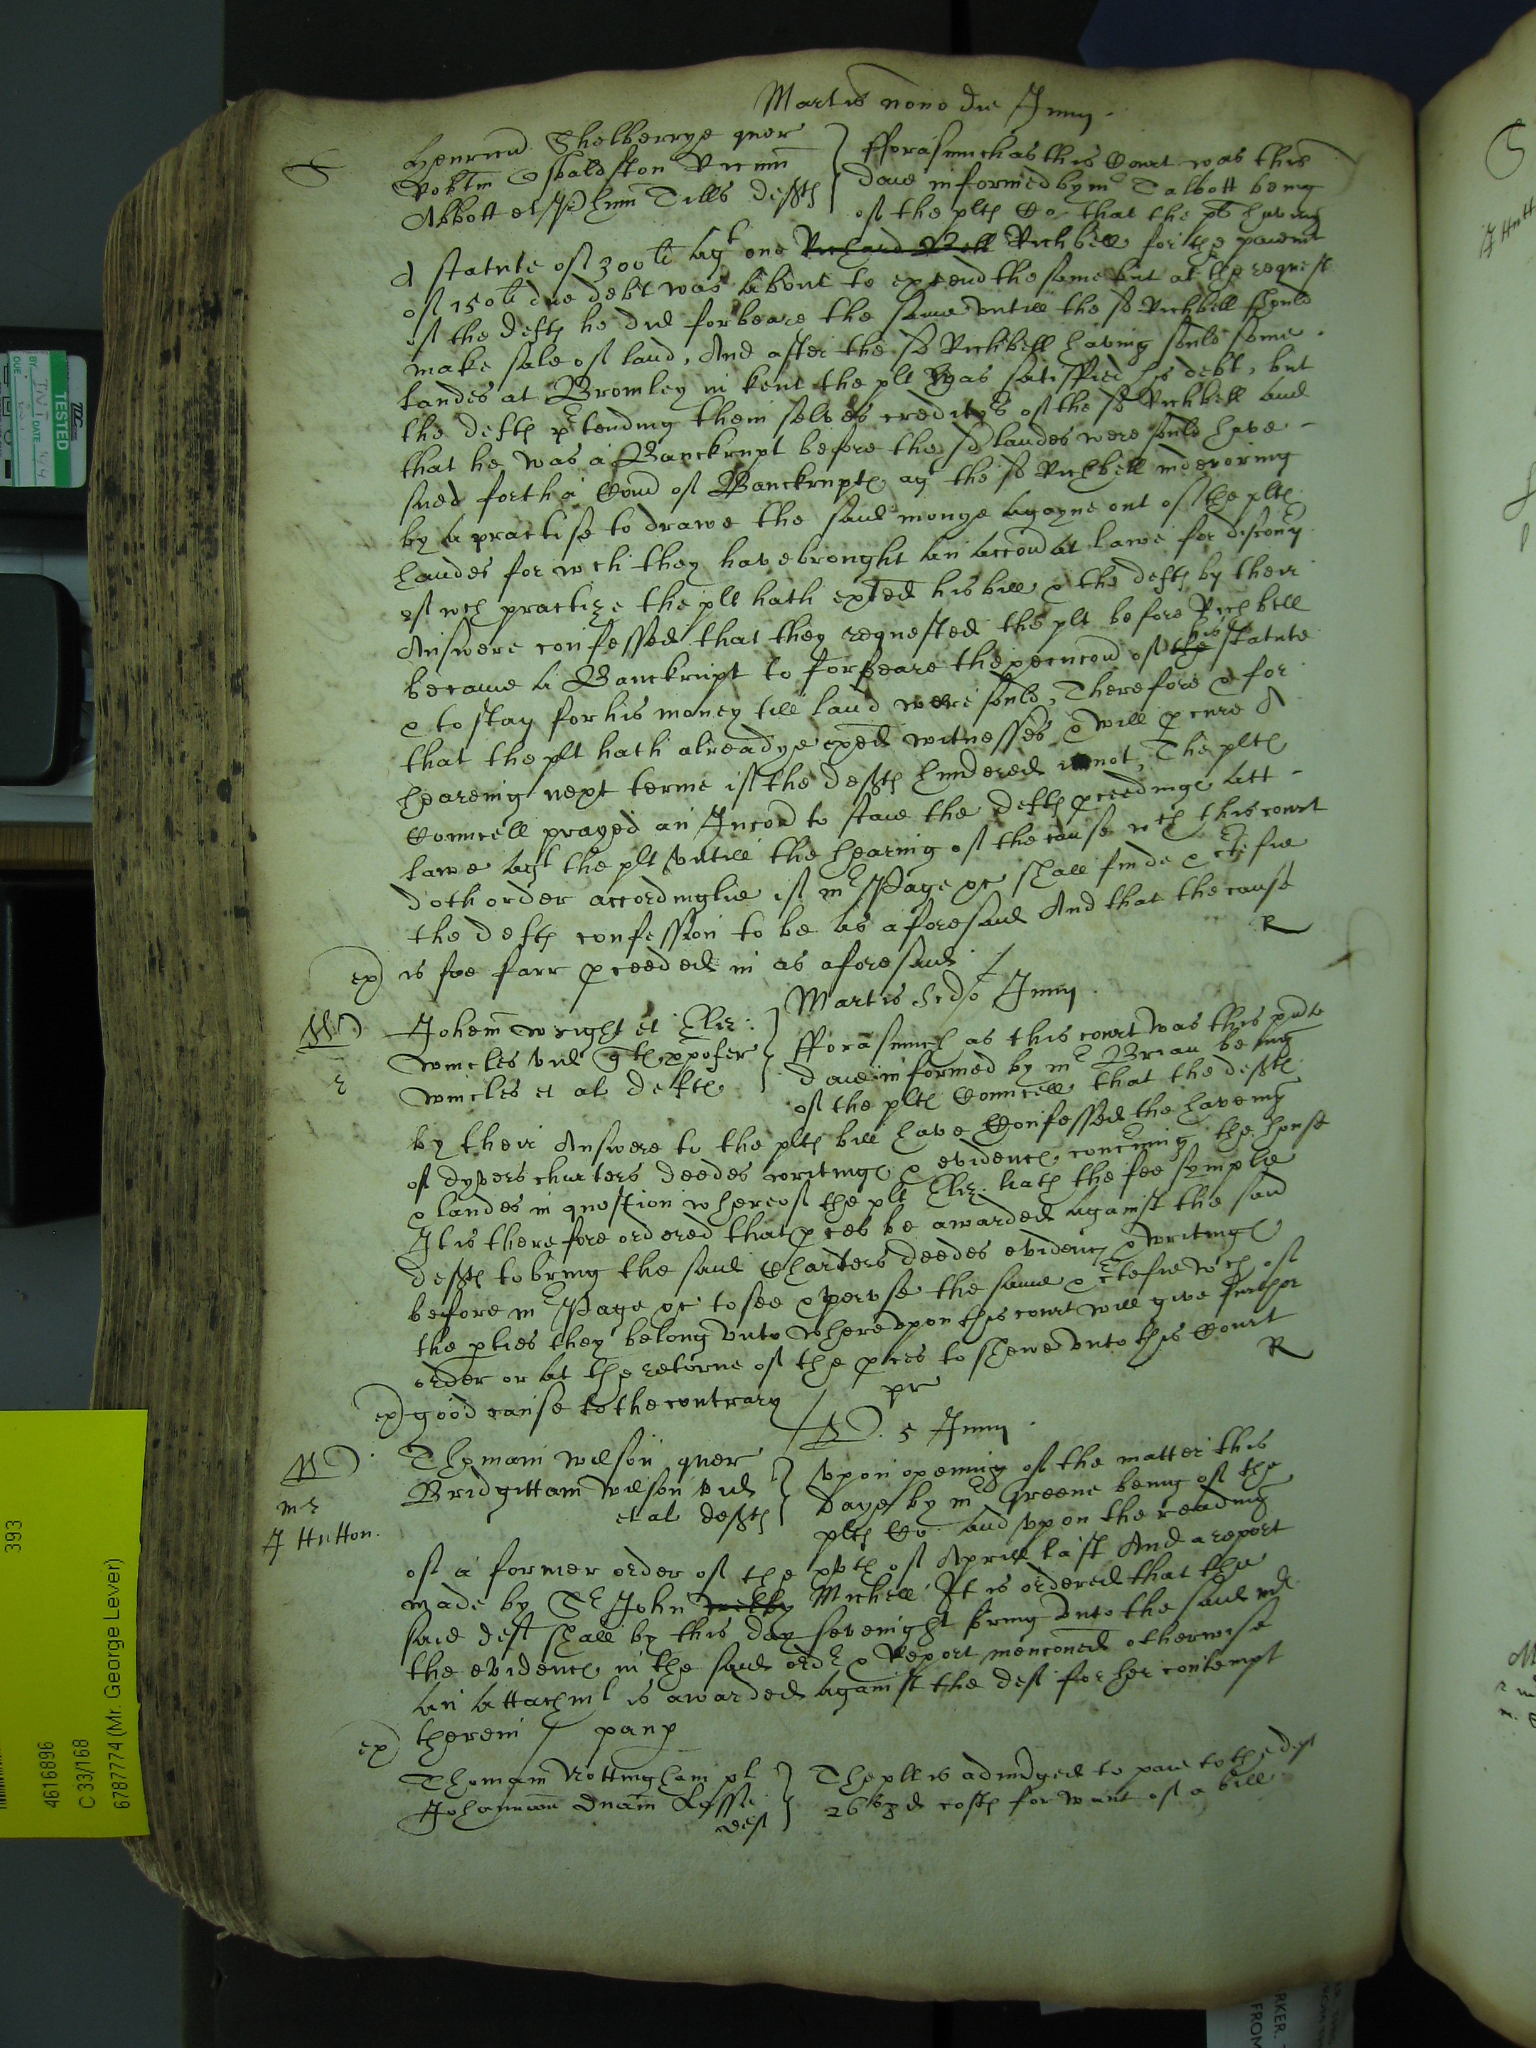 Martis nono die Junij
S
Henricu Shelberrye quer
Robtm Osbaldston
Abbott et Tills deftes
fforasmuch as this Court was this
daie informed by mr Talbott being
of the pltes Co that the plt having
A statute of 300li agt one Richard Bell Richbell for the paiemt
of 150li due debt was about to extend the same but at the request
of the deftes he did forbeare the same untill the sd Richbell should
make sale of land, And after the sd Richbell having sould some
landes at Bromley in kent the plt was satisffied his debt, but
the deftes ptending them selves creditors of the sd Richbell and
that he was a Banckrupt before the sd landes were sould have
sued forth a Comd of Banckruptes agt the sd Richbell indevoring
by a practise to drawe the said monye agayne out of the pltes
handes for wch they have brought an accon at lawe for discouy
of wch practize the plt hath exhted his bill & the deftes by their
Answere confessed that they requested the plt before Richbell
became a Banckrupt to forbeare the execucon of the his statute
& to stay for his money till land were sould, Therefore & for
that the plt hath alreadye exed witnesses & will pcure A
heareing next terme if the deftes hindered it not, The pltes
Councell prayed an Iniucon to staie the deftes pceedinges att
lawe agt the plt untill the hearing of the cause wch this court
doth order accordinglie if mr Page &c shall finde & ctefie
the deftes confession to be as aforesaid And that the cause
R
ex) is soe farr pceeded in as aforesaid /
Martis scdo Junij
Johem wright et Eliz:
winckles vid
winckles et al deftes
fforasmuch as this court was this pnte
daie informed by mr Brian being
of the pltes Councell that the deftes
by their Answere to the pltes bill have Confessed the haveing
of dyvers charters deedes writinges & evidences concerning the house
& landes in question whereof the plt Eliz. hath the fee symple
It is therefore ordered that pces be awarded against the said
deftes to bring the said Charters deedes evidences & writinges
before mr Page &c to see & peruse the same & ctefie wch of
the pties they belong unto whereupon this court will give further
order or at the retorne of the pces to shewe unto this Court
R
ex) good cause to the contrary / pr
5 Junij
mr
J Hutton.
Thomam wilson quer
Bridgittam wilson vid
et al deftes
Upon opening of the matter this
daye by mr Greene being of the
pltes Co and upon the reading
of a former order of the xvth of Aprill last And a report
made by Sr John Michell It is ordered that the
said deft shall by this day sevenight bring unto the said mr
the evidences in the said ordr & Report mencioned otherwise
an attachmt is awarded against the deft for her contempt
ex) therein /
Thomam Nottingham plt
Johannam dnam
deft
The plt is adiudged to paie to the deft
26s 8d costes for want of a bill
TESTED
393
4616896
C 33/168
6787774 (Mr. George Lever)